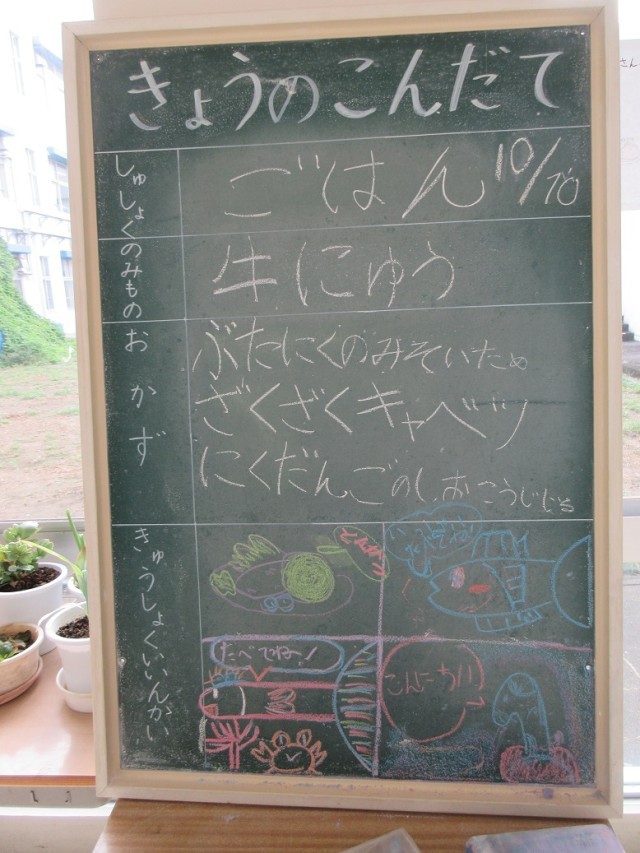 きょうのこんだて
しゅしょく
ごはん 10/20
のみもの
牛にゅう
おかず
ぶたにくのみそいため
ざくざくキャベツ
にくだんごのしおこうじじる
きゅうしょくいいんかい
とんかつ
たべてね
たべてね〜!
こんにちは